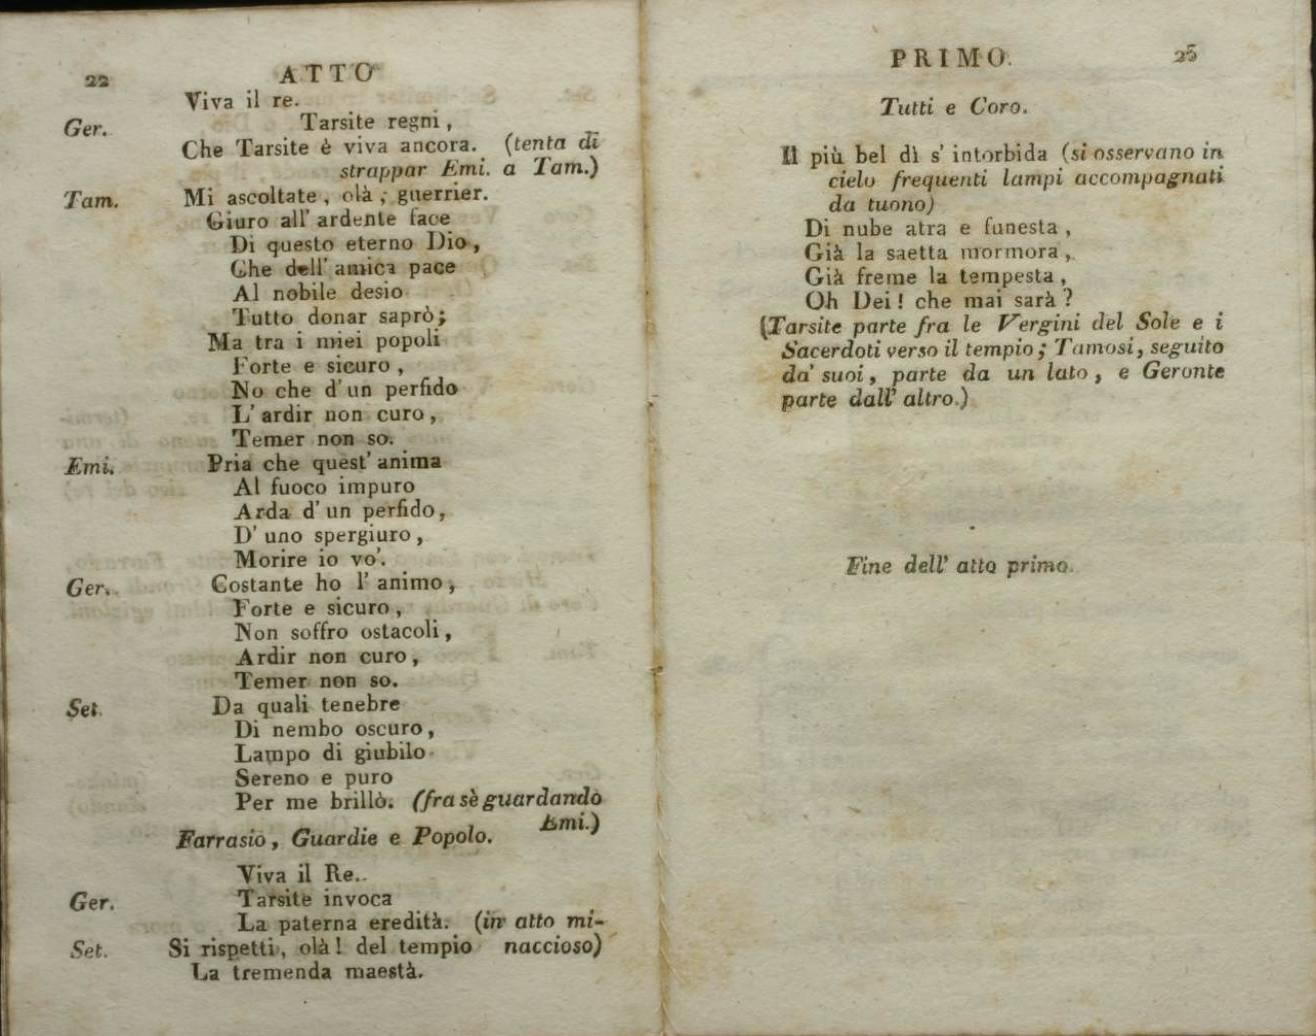 22 ATTO
Viva il re.
Ger. Tarsite regni,
Che Tarsite è viva ancora. (tenta di
strappar Emi. a Tam.)
Tam. Mi ascoltate, olà; guerrier.
Giuro all' ardente face
Di questo eterno Dio,
Che dell' amica pace
Al nobile desio
Tutto donar saprò;
Ma tra i miei popoli
Forte e sicuro,
No che d' un perfido
L' ardir non curo,
Temer non so.
Emi. Pria che quest' anima
Al fuoco impuro
Arda d' un perfido,
D' uno spergiuro,
Morire io vo'.
Ger. Costante ho l' animo,
Forte e sicuro,
Non soffro ostacoli,
Ardir non curo,
Temer non so.
Set. Da quali tenebre
Di nembo oscuro,
Lampo di giubilo
Sereno e puro
Per me brillò. (fra sè guardando
Emi.)
Farrasio, Guardie e Popolo.
Viva il Re.
Ger. Tarsite invoca
La paterna eredità. (in atto mi-
Set. Si rispetti, olà! del tempio naccioso)
La tremenda maestà.
PRIMO. 23
Tutti e Coro.
Il più bel dì s' intorbida (si osservano in
cielo frequenti lampi accompagnati
da tuono)
Di nube atra e funesta,
Già la saetta mormora,
Già freme la tempesta,
Oh Dei! che mai sarà?
(Tarsite parte fra le Vergini del Sole e i
Sacerdoti verso il tempio; Tamosi, seguito
da' suoi, parte da un lato, e Geronte
parte dall' altro.)
Fine dell' atto primo.